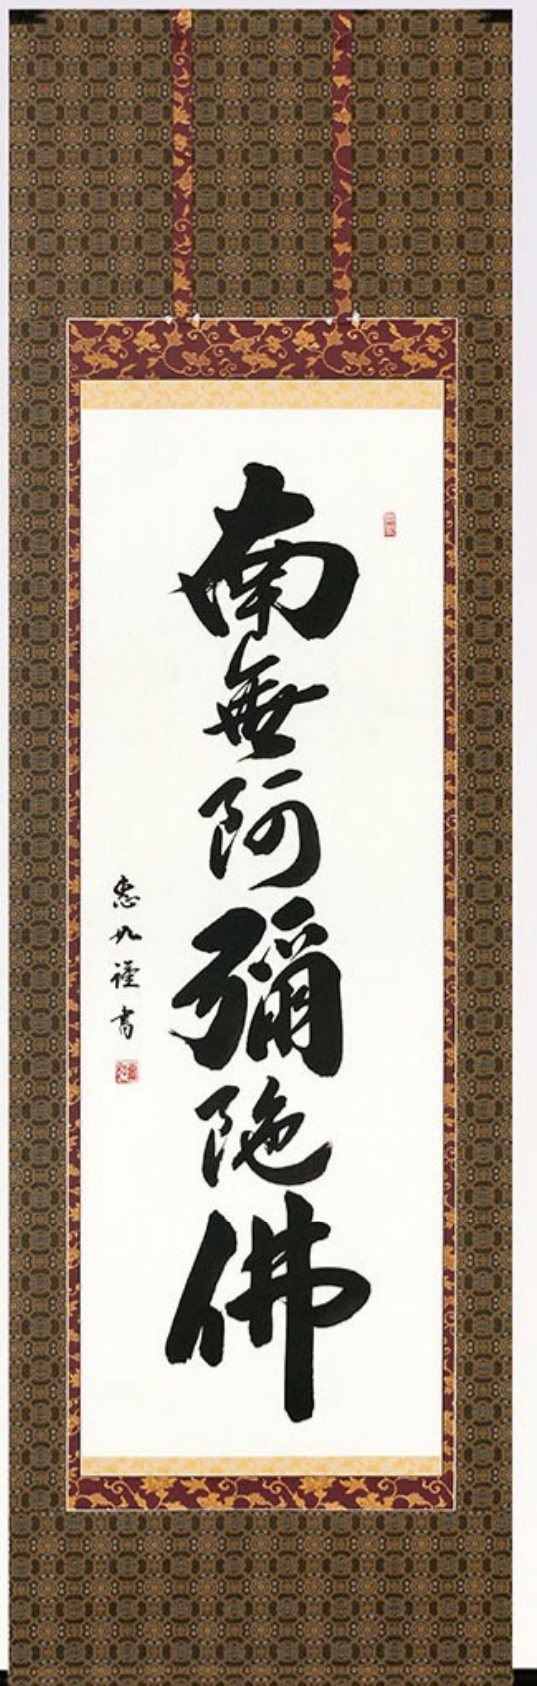 南無阿彌陀佛
恵九謹書